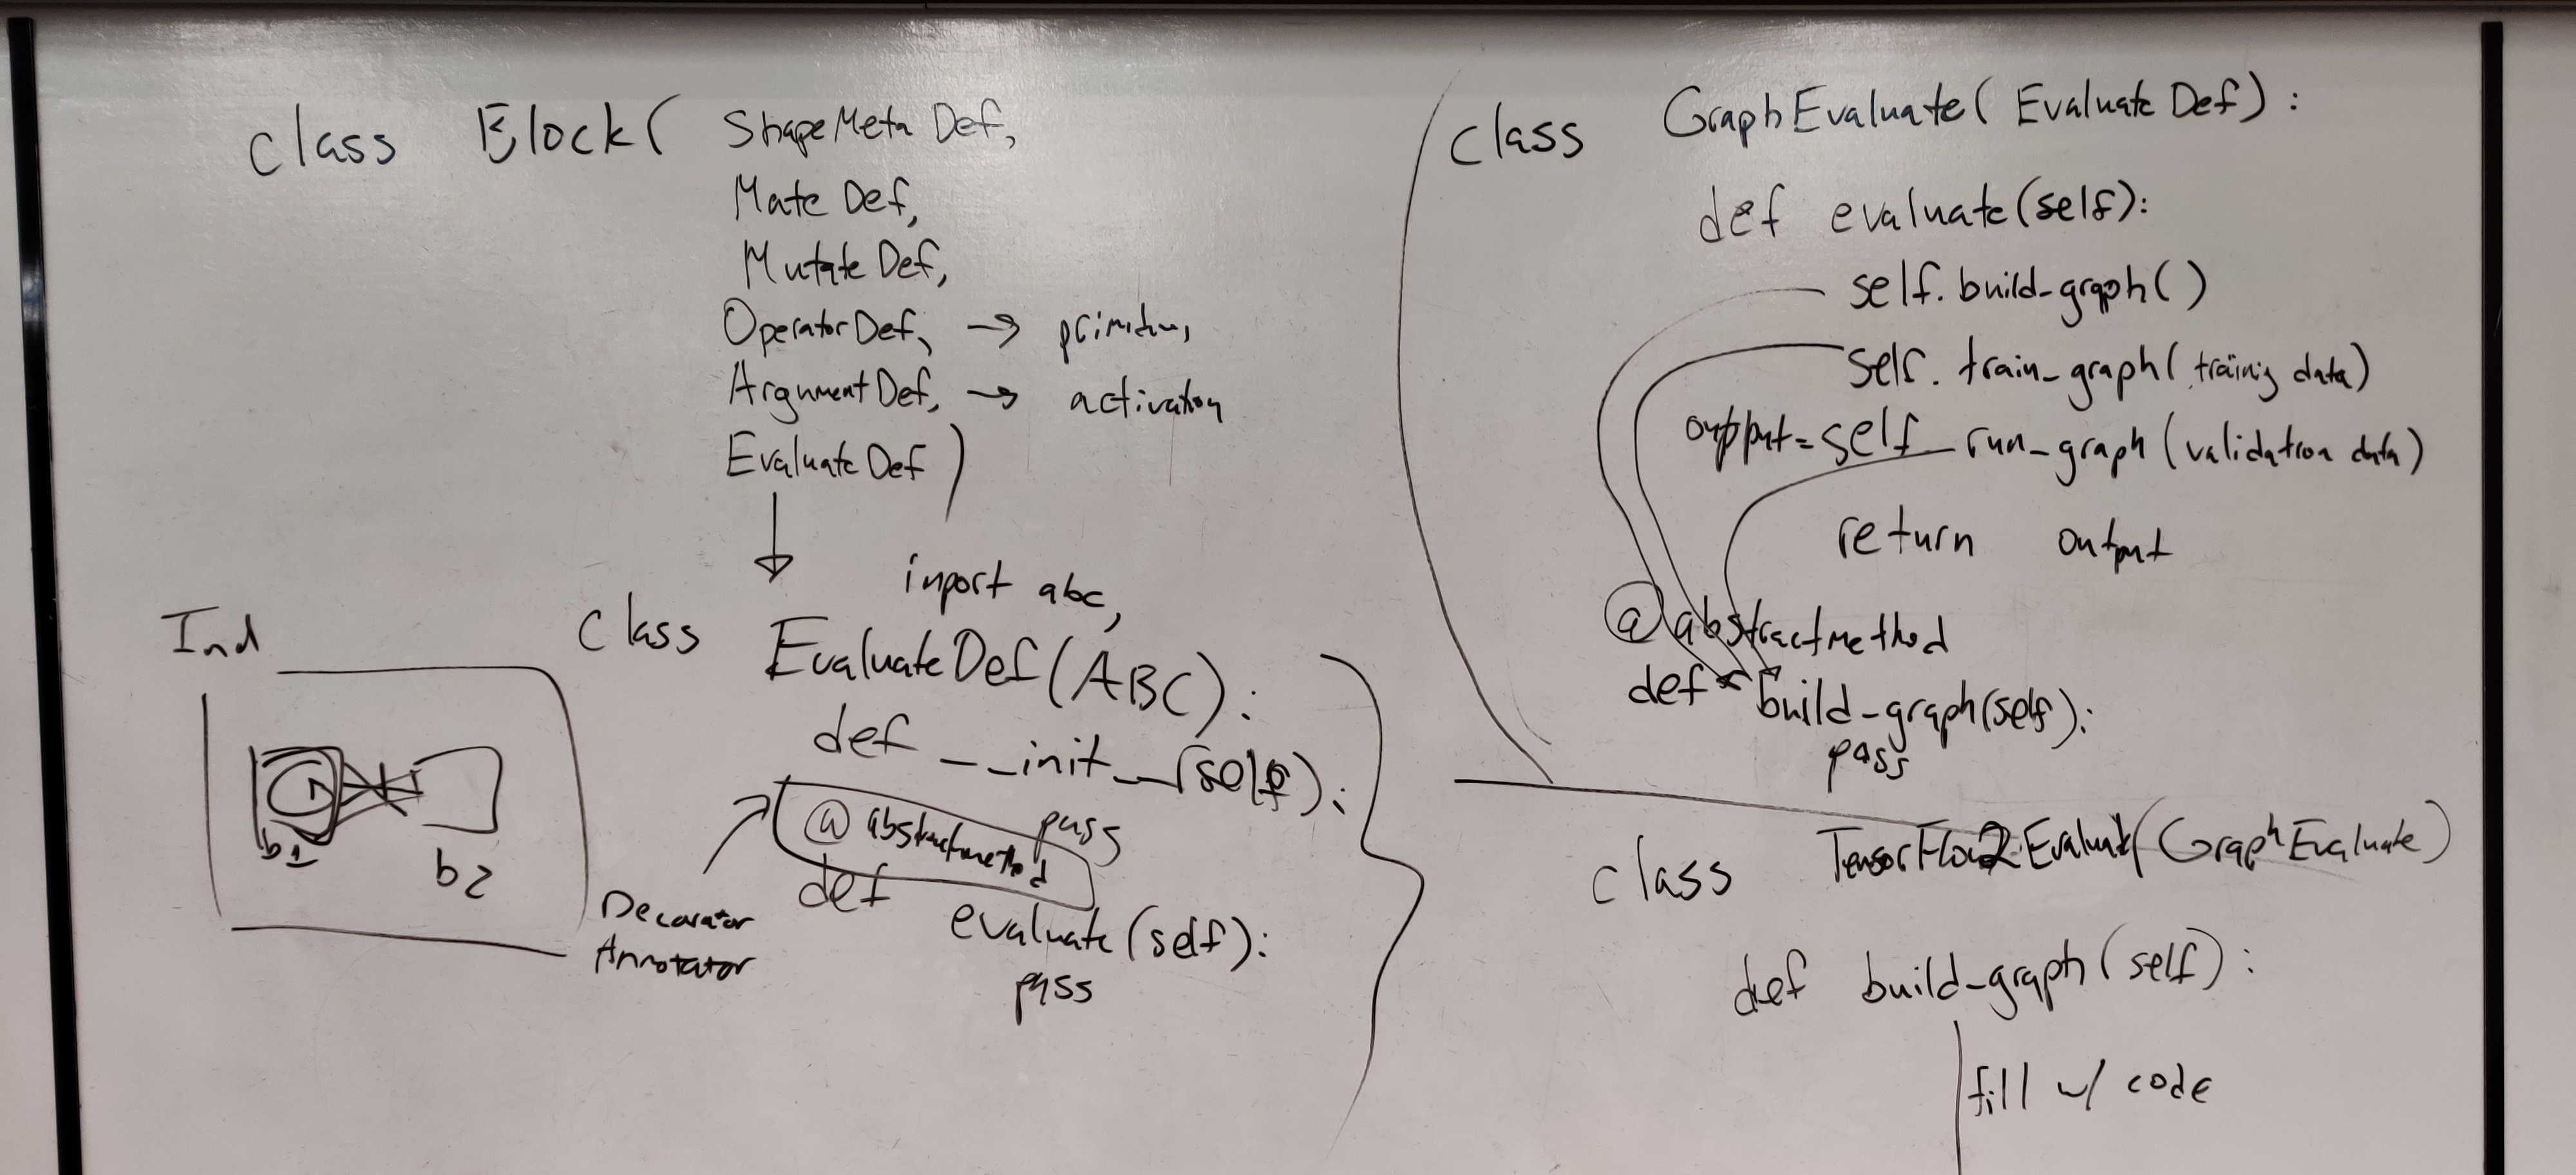 class Block( ShapeMeta Def,
Mate Def,
Mutate Def,
OperatorDef, →
ArgumentDef, → activation
Evaluate Def )
import abc,
class EvaluateDef(ABC):
def __init__(self):
pass
@abstractmethod
def evaluate(self):
pass
Decorator
Annotator
Ind
b1
b2
class GraphEvaluate( Evaluate Def ):
def evaluate(self):
self.build_graph()
self.train_graph( training data)
output = self_run_graph (validation data)
return output
@abstractmethod
def build_graph(self):
pass
class TensorFlow2Evaluate(GraphEvaluate)
def build_graph(self):
fill w/ code